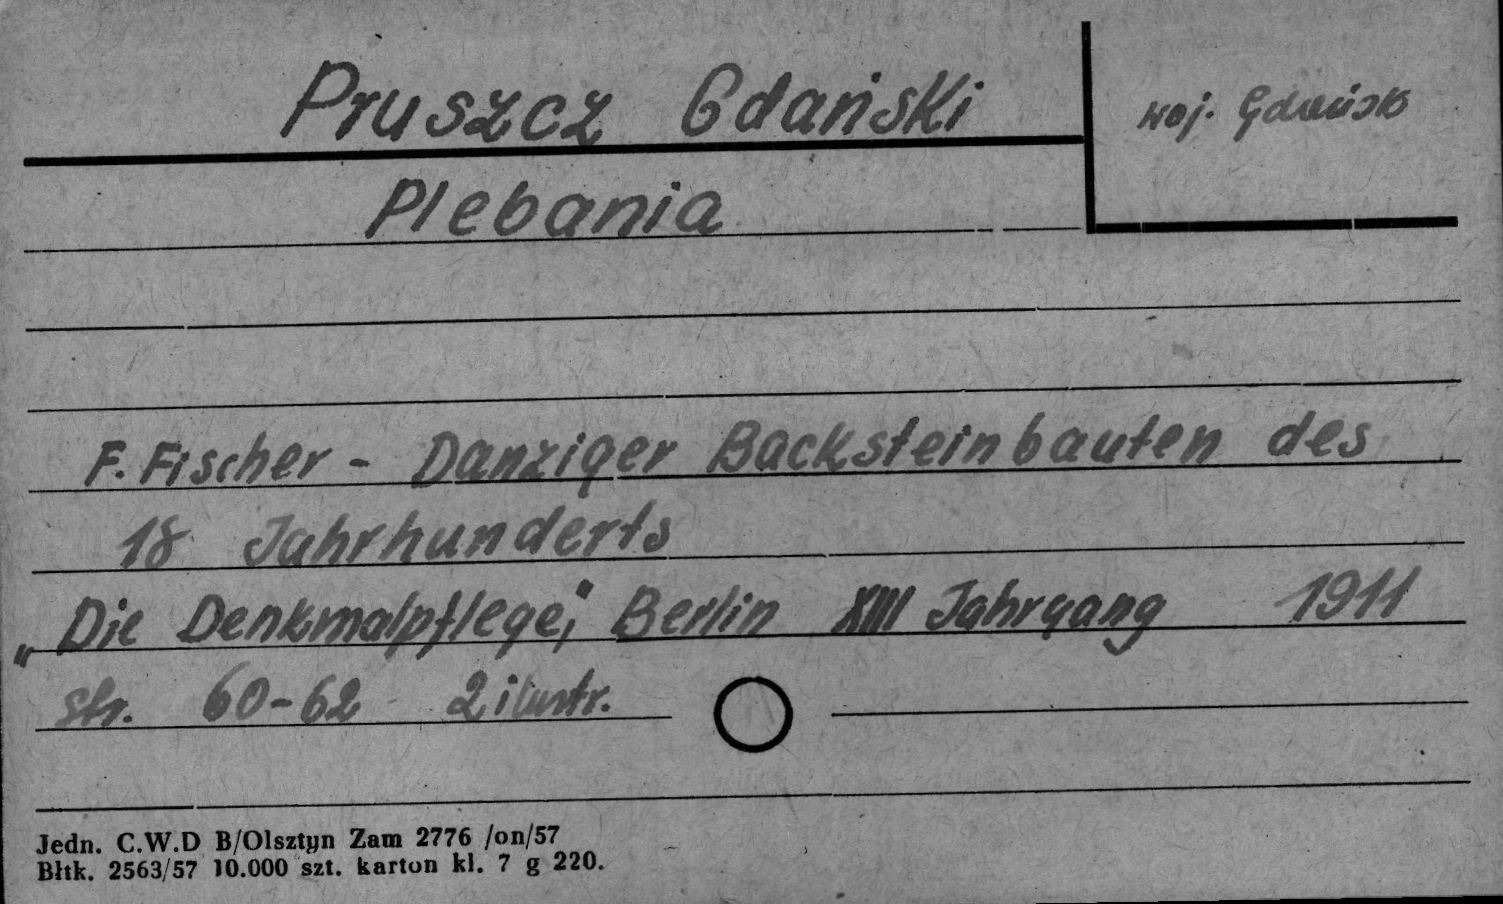 Pruszcz Gdański
woj. Gdańsk
Plebania
F. Fischer - Danziger Backsteinbauten des
18 Jahrhunderts
„Die Denkmalpflege," Berlin XIII Jahrgang 1911
str. 60-62 2 ilustr.
Jedn. C.W.D B/Olsztyn Zam 2776 /on/57
Błtk. 2563/57 10.000 szt. karton kl. 7 g 220.